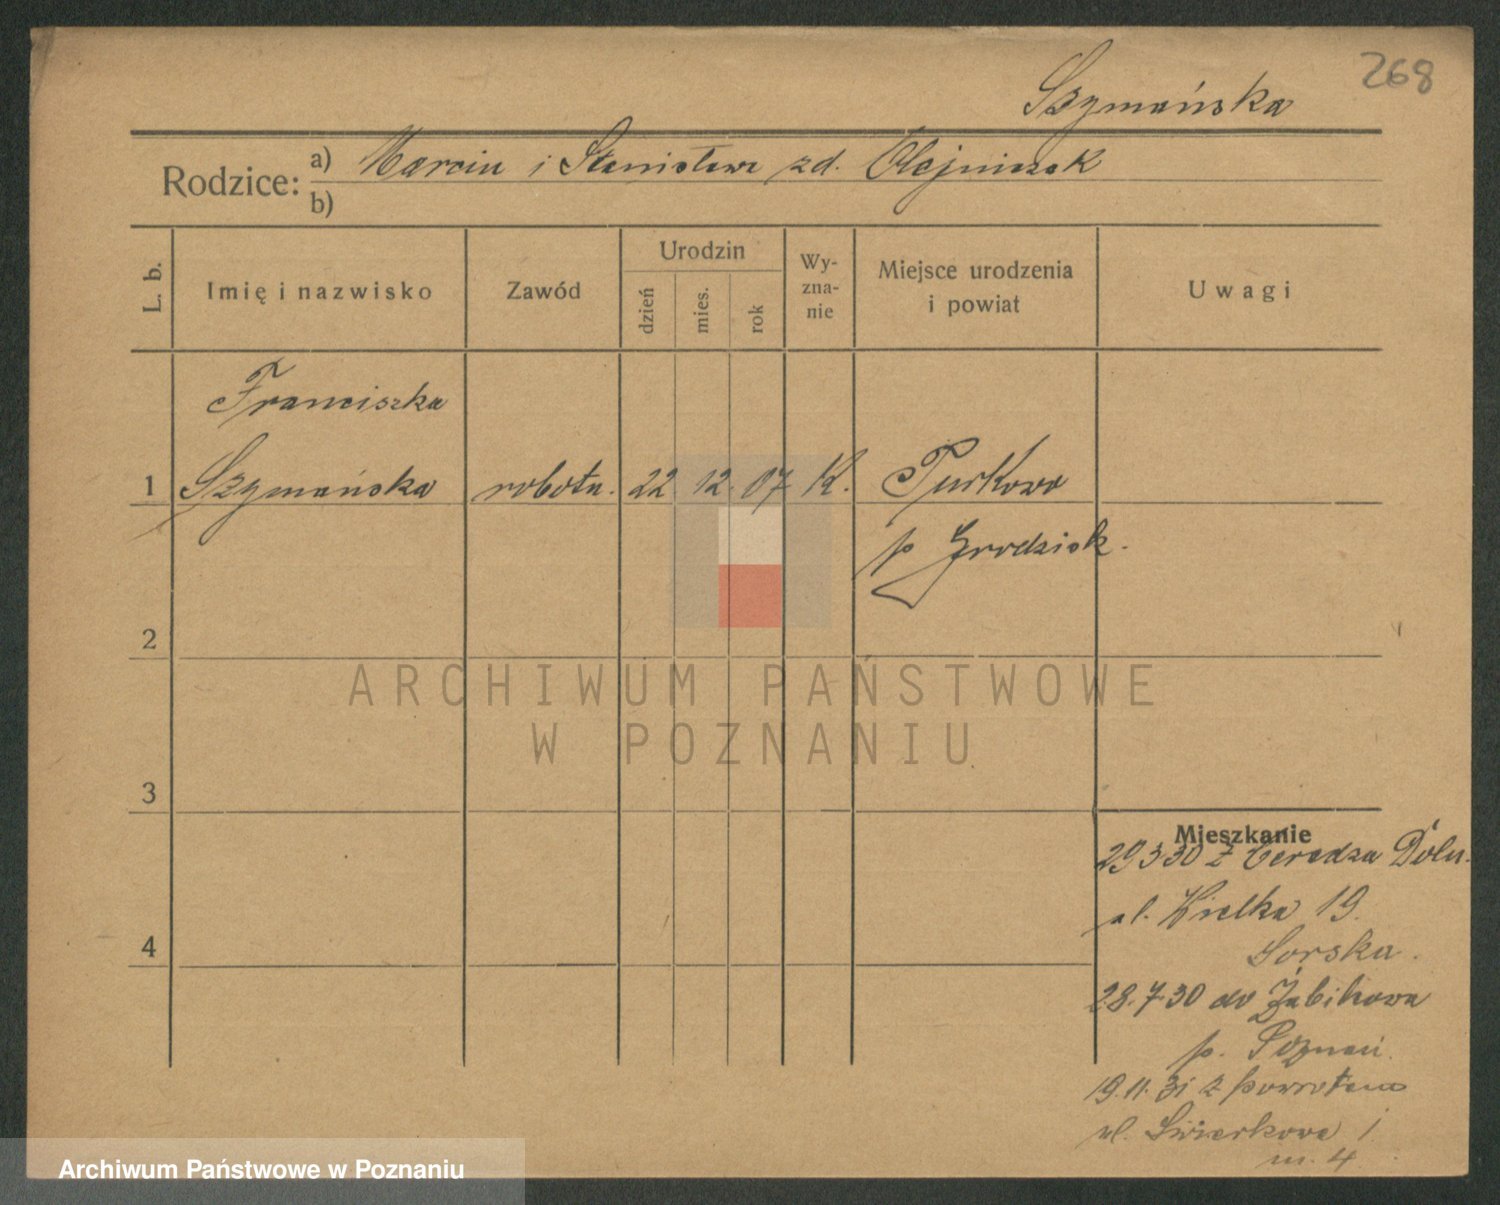 268
Szymańska
Rodzice: a) Marcin i Stanisława zd. Olejniczak
b)
L. b. Imię i nazwisko Zawód Urodzin dzień mies. rok Wy-zna-nie Miejsce urodzenia i powiat Uwagi
Franciszka
1 Szymańska robotn. 22. 12. 07 K. Turkowo
p Grodzisk.
2
ARCHIWUM PAŃSTWOWE
W POZNANIU
3
Mieszkanie
29 3 30 z Ceradza Doln.
ul. Wielka 19.
4
Gorska.
28.7.30 do Żabikowa
p. Poznań.
19.11.31 z powrotem
ul. Świerkowa 1
m. 4
Archiwum Państwowe w Poznaniu